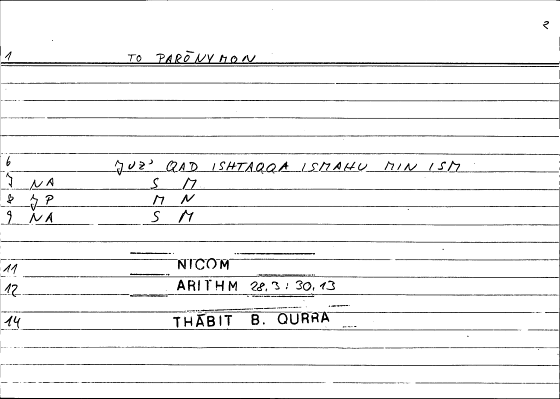 2
1 TO PARŌNYMON
6 JUZ' QAD ISHTAQQA ISMAHU MIN ISM
7 NA S M
8 JP M N
9 NA S M
11 NICOM
12 ARITHM 28,3 : 30,13
14 THĀBIT B. QURRA